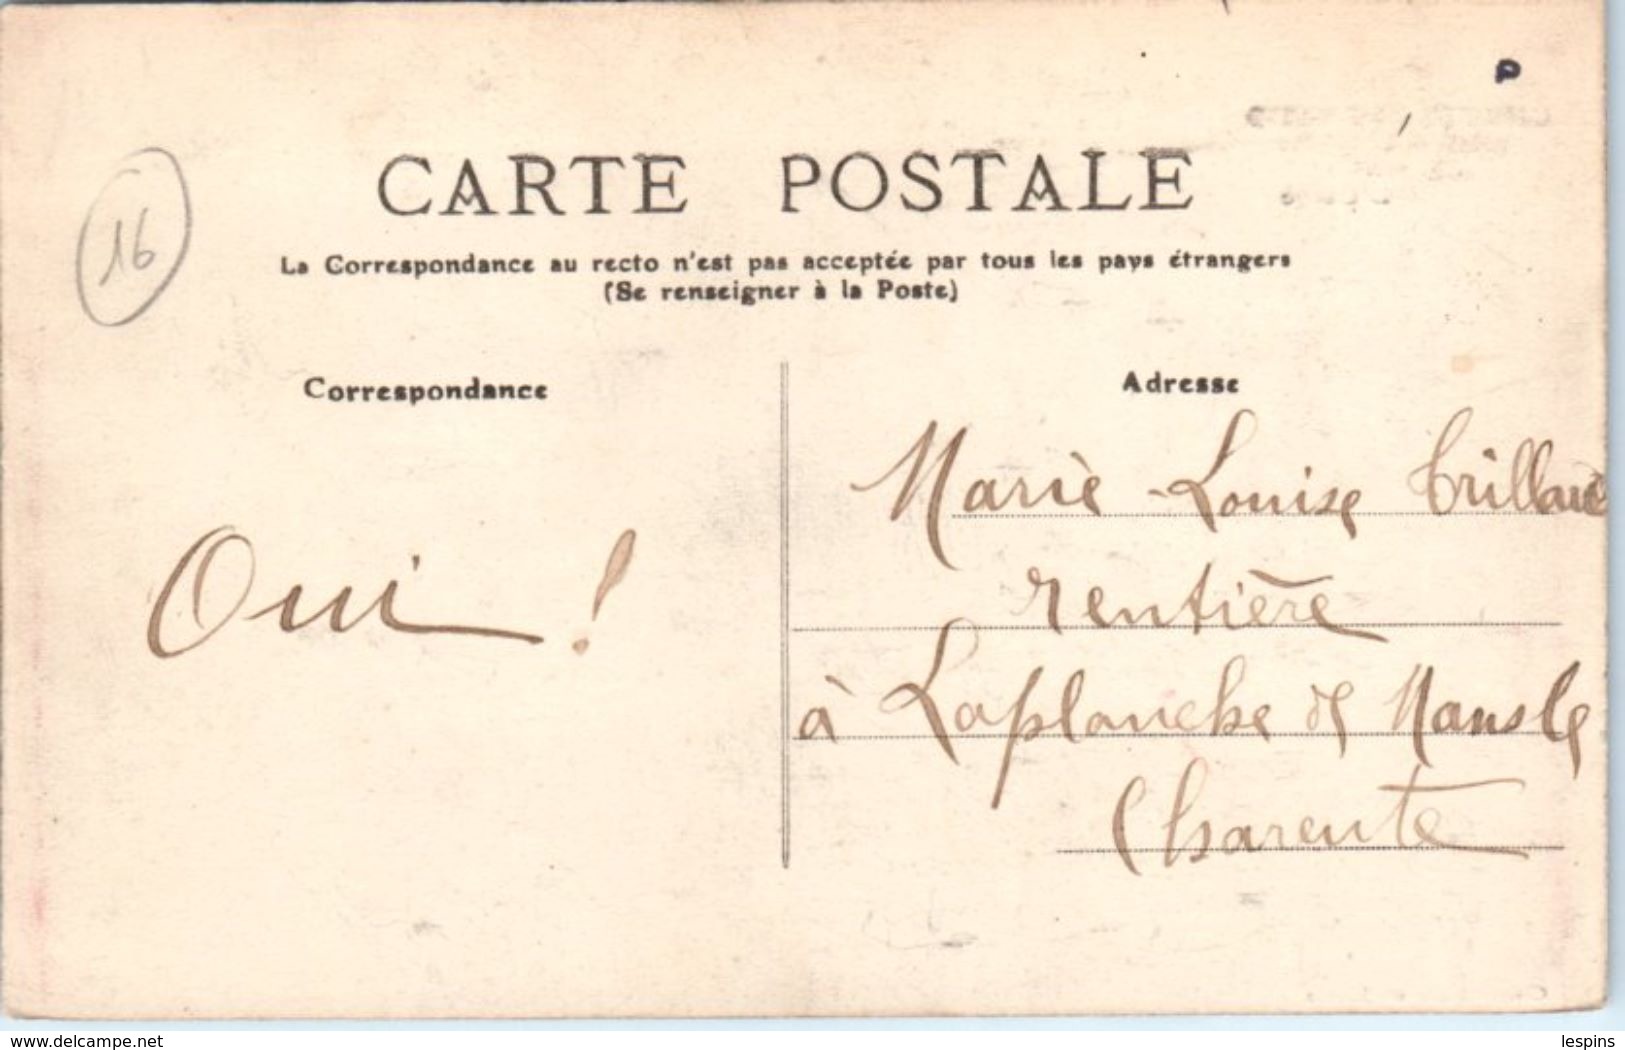 CARTE POSTALE
La Correspondance au recto n'est pas acceptée par tous les pays étrangers
(Se renseigner à la Poste)
16
Correspondance
Oui !
Adresse
Marie-Louise
rentière
à Laplanche de Mansle
Charente
www.delcampe.net
lespins